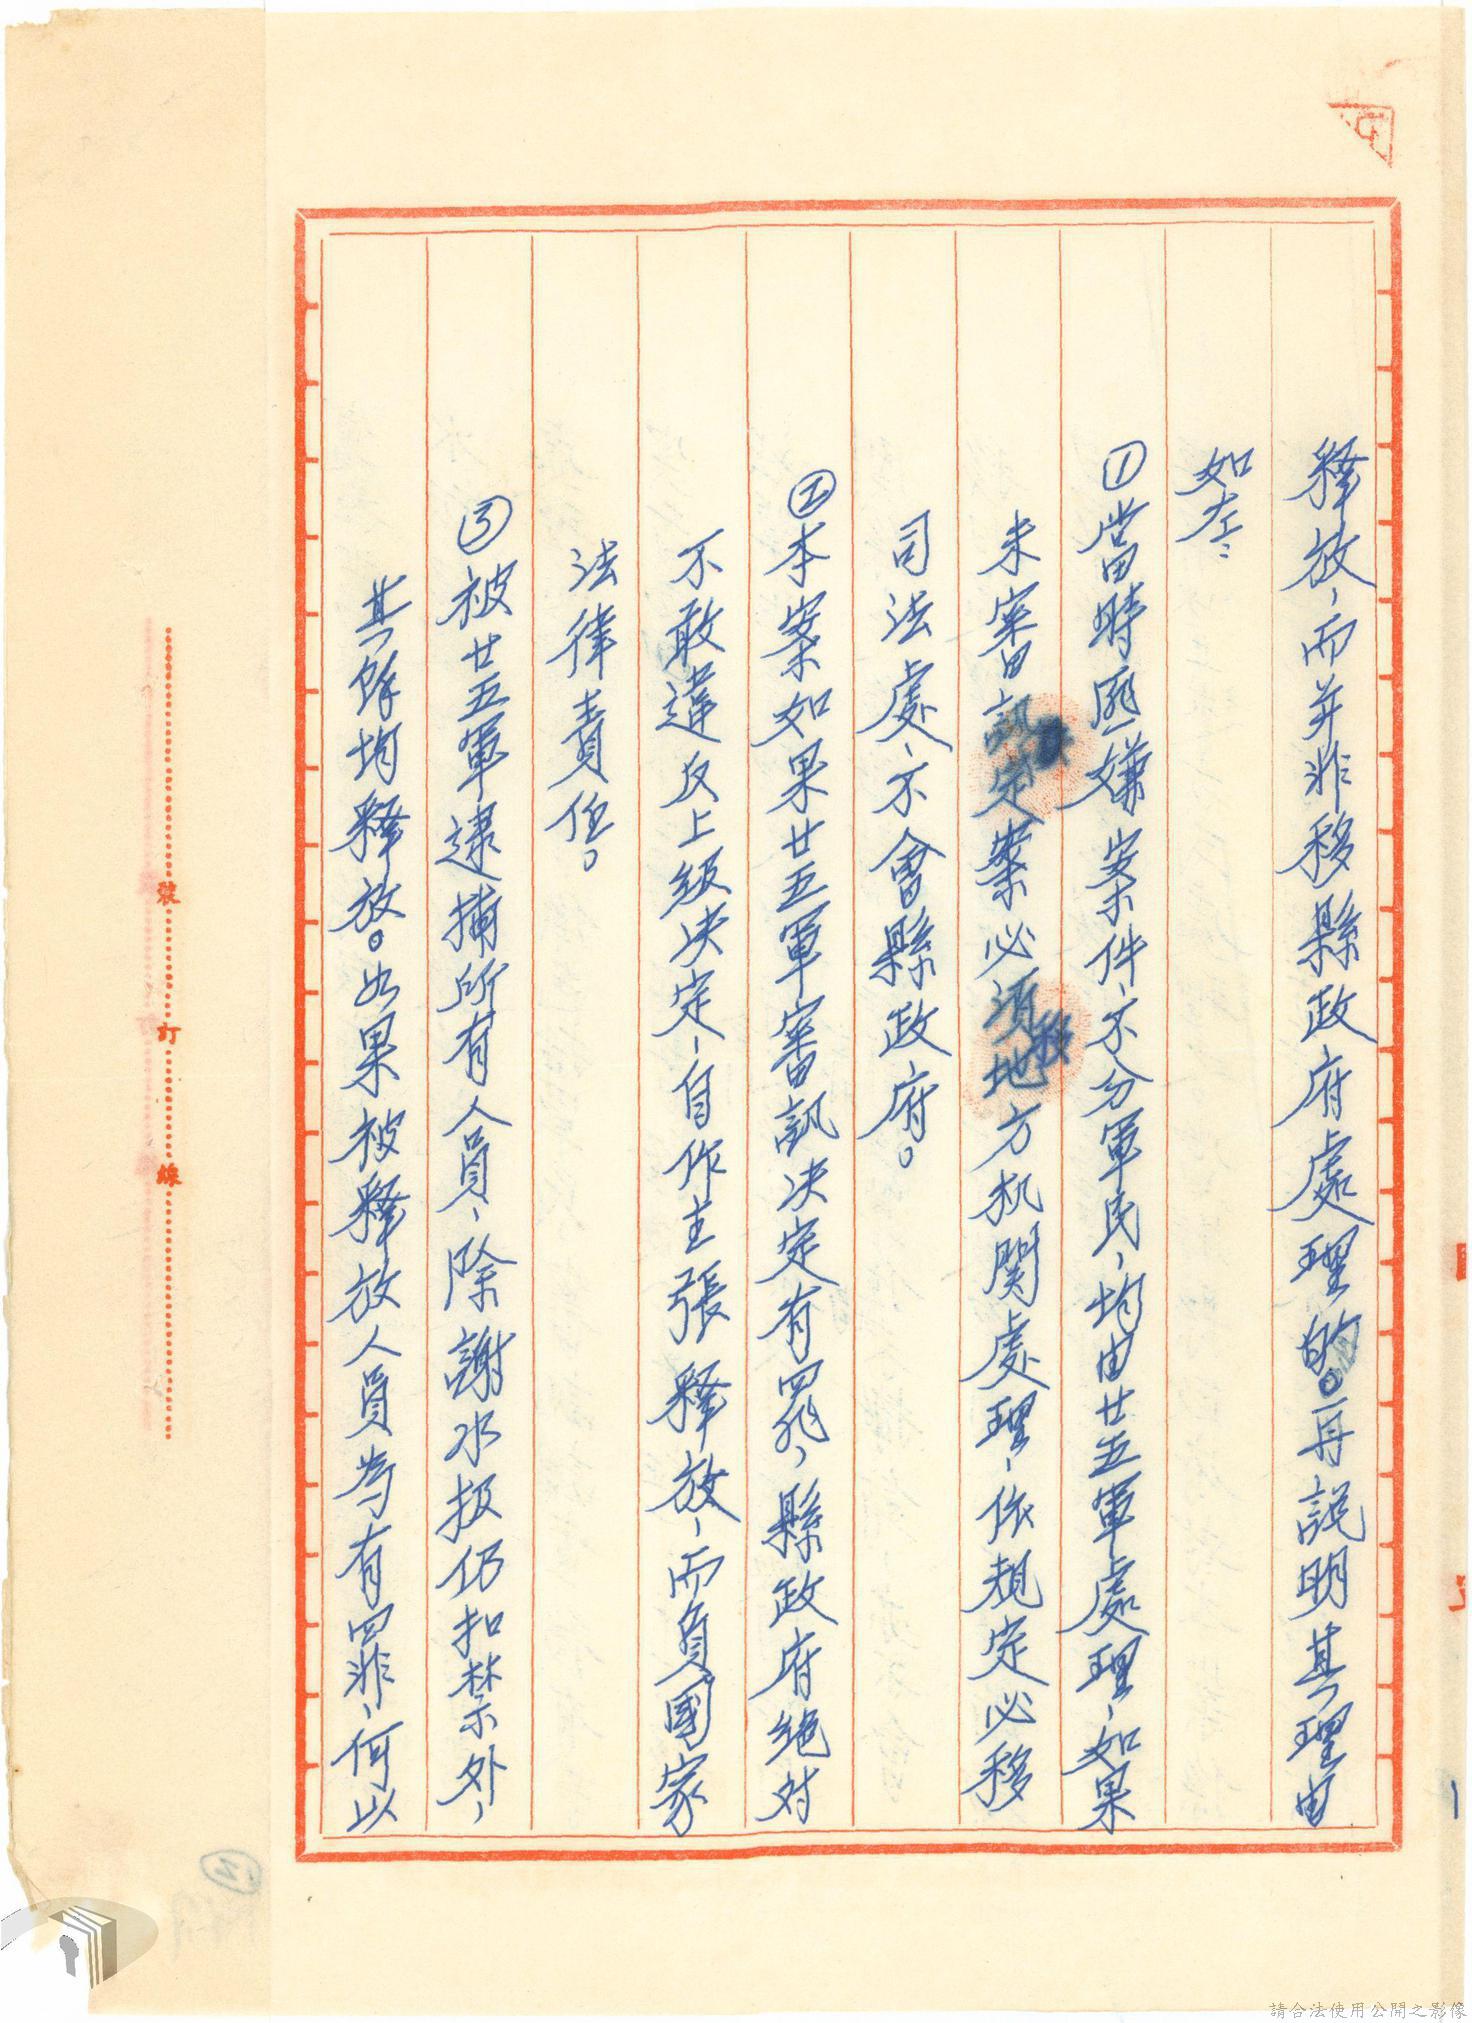 釋放，而并非移縣政府處理的。再説明其理由
如左：
①當時匪嫌案件、不分軍民，均由廿五軍處理，如果
未審訊定案必須移地方机関處理、依規定必移
司法處、不會縣政府。
②本案如果廿五軍審訊决定有罪，縣政府絶对
不敢違反上級决定、自作主張釋放，而負國家
法律責任。
③被廿五軍逮捕所有人員、除謝水扱仍扣禁外，
其餘均釋放。如果被釋放人員為有罪、何以
裝訂線
請合法使用公開之影像